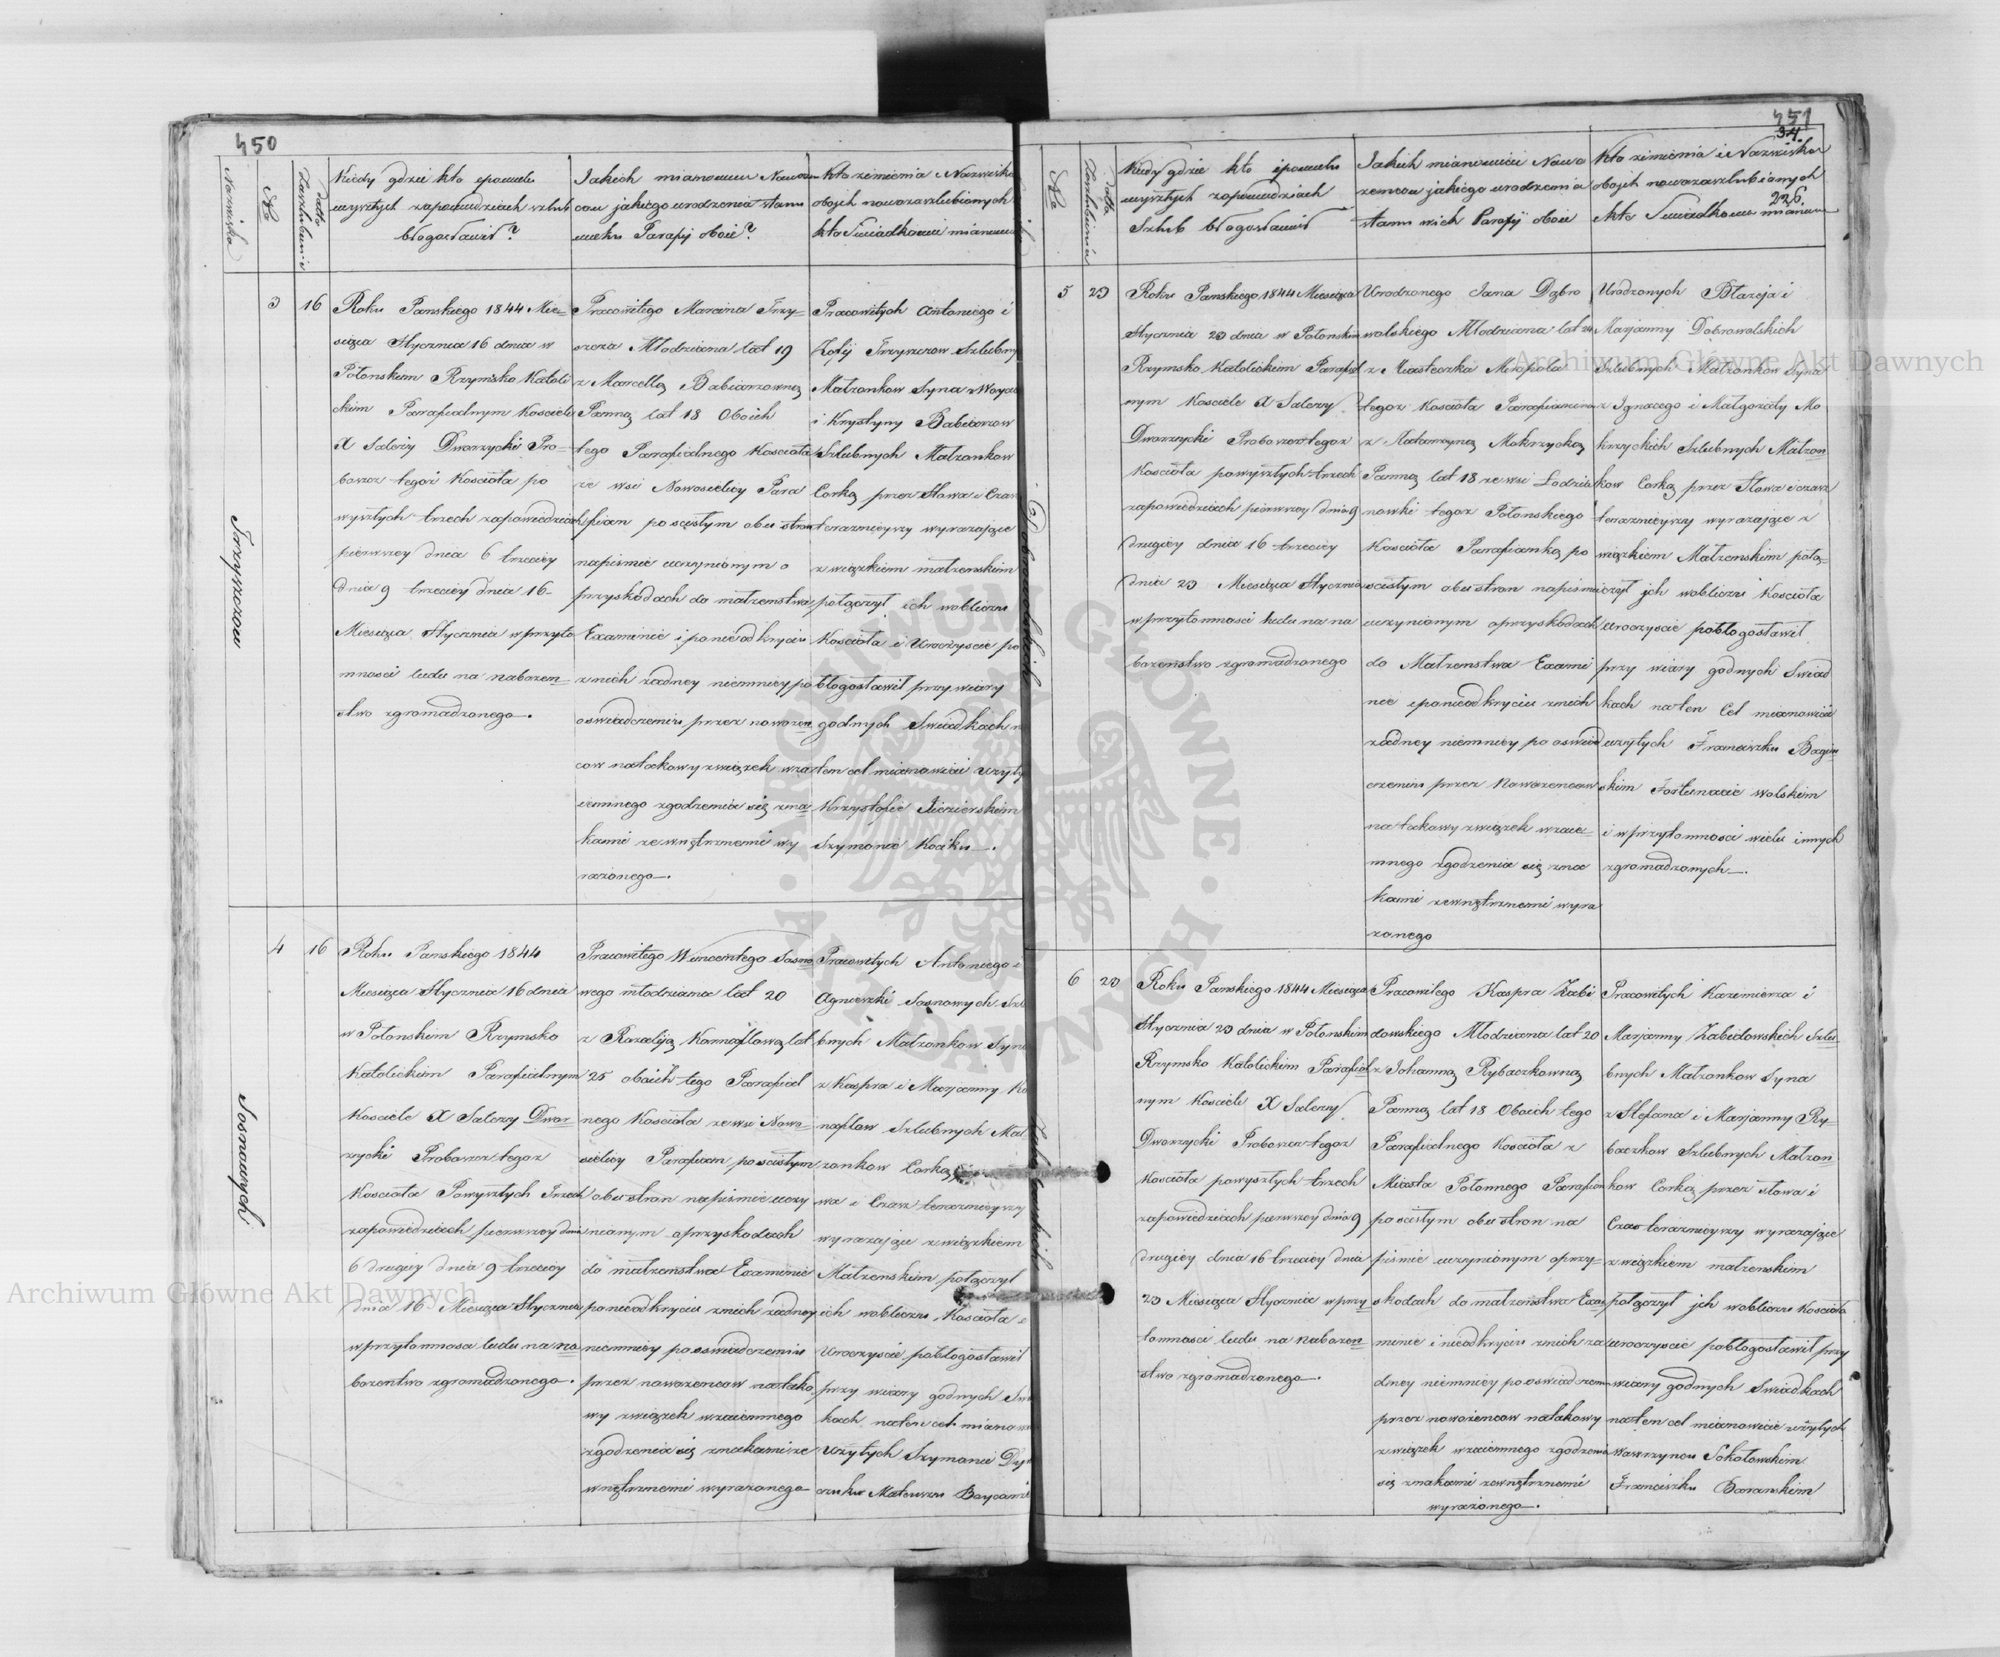 450
Nazwisko
No
Datta Zaszlubienia
Kiedy gdzie kto i po wielu
wyszłych zapowiedziach szlub
błogosławił?
Jakich mianowicie Nowożen
cow jakiego urodzenia stanu
wieku Parafij oboie?
Kto z imienia i Nazwiska
obojch nowozaszlubionych
kto Swiadkowie mianowicie
3
16
Trzyszczow
Roku Panskiego 1844 Mie-
siąca Stycznia 16 dnia w
Połonskim Rzymsko Katoli
ckim Parafialnym Kosciele
X Salezy Dworzycki Pro-
boszcz tegoż Kosciola po
wyszłych trzech zapowiedziach
pierwszey dnia 6 trzeciey
dnia 9 trzeciey dnia 16-
Miesiąca Stycznia w przyto
mnosci ludu na nabożen-
stwo zgromadzonego.
Pracowitego Marcina Trzy-
szcza Młodziana lat 19
z Marcellą Babiarzowną
Panną lat 18 Oboich
tego Parafialnego Kosciola
ze wsi Nowosielicy Para
fian po scistym obu stron
napismie uczynionym o
przyskodach do małżenstwa
Examinie i ponieodkryciu
z nich żadney niemniey po
oswiadczeniu przez nowożen
cow natakowy związek wza
iemnego zgodzenia się zna
kami zewnętrznemi wy
rażonego.
Pracowitych Antoniego i
Zofij Trzyszczow Szlubny
Małżonkow Syna z Woycie
i Krystyny Babiarzow
Szlubnych Małżonkow
Corką przez Słowa i Czas
teraznieyszy wyrażające
związkiem małżenskim
połączył ich wobliczu
Kosciola i Uroczyscie po
błogosławił przy wiary
godnych Swiadkach n
ten cel mianowicie użyty
Krzysztofie Jezierskim
Szymonie Koćku.
4
16
Sosnowych
Roku Panskiego 1844
Miesiąca Stycznia 16 dnia
w Połonskim Rzymsko
Katolickim Parafialnym
Kosciele X Salezy Dwor-
zycki Proboszcz tegoż
Kosciola Powyszłych Trzech
zapowiedziach pierwszey dnia
6 drugiey dnia 9 trzeciey
dnia 16 Miesiąca Stycznia
w przytomnosci ludu na na
bożentwo zgromadzonego.
Pracowitego Wincentego Sosno
wego młodziana lat 20
z Rozaliją Kannaflową lat
25 oboich tego Parafial
nego Kosciola ze wsi Nowo-
sielicy Parafian po scistym
obu stron napismie uczy
nionym o przyskodach
do małżenstwa Examinie
ponieodkryciu znich żadney
niemniey po oswiadczeniu
przez nowożencow natako
wy związek wzaiemnego
zgodzenia się znakami ze
wnętrznemi wyrażonego
Pracowitych Antoniego i
Agnieszki Sosnowych Szl
bnych Małżonkow Syna
z Kaspra i Marjanny Ka
naplow Szlubnych Mał
żonkow Corką
wa i Czas teraznieyszy
wyrażające związkiem
Małżenskim połączył
ich wobliczu Kosciola i
Uroczyscie pobłogosławił
przy wiary godnych Swia
kach naten cel mianowi
użytych Szymonie
Mateuszu
451
34.
226.
No
Datta Zaszlubienia
Kiedy gdzie kto i powielu
wyszłych zapowiedziach
Szlub błogosławił
Jakich mianowicie Nowo
żencow jakiego urodzenia
stanu wiek Parafij oboie
Kto z imienia i Nazwiska
obojch nowozaszlubionych
i kto Swiadkowie mianowicie
5
23
Dobrowolskich
Roku Panskiego 1844 Miesiąca
Stycznia 23 dnia w Połonskim
Rzymsko Katolickim Parafial
nym Kosciele X Salezy
Dworzycki Proboszcz tegoż
Kosciola powyszłych trzech
zapowiedziach pierwszey dnia 9
drugiey dnia 16 trzeciey
dnia 23 Miesiąca Stycznia
w przytomnosci ludu na na
bożenstwo zgromadzonego
Urodzonego Jana Dąbro
wolskiego Młodziana lat 24
z Miasteczka Miropola
tegoż Kosciola Parafianina
z Katarzyną Mokrzycką
Panną lat 18 ze wsi Łodzia
nowki tegoż Połonskiego
Kosciola Parafianką po
scistym obu stron napismie
uczynionym o przyskodach
do Małżenstwa Exami
nie i ponieodkryciu znich
żadney niemniey po oswiad
czeniu przez Nowożencow
natakowy związek wzaie-
mnego zgodzenia się zna
kami zewnętrznemi wyra
żonego
Urodzonych Błażeja i
Marjanny Dobrowolskich
Szlubnych Małżonkow Syna
z Ignacego i Małgorzaty Mo
krzyckich Szlubnych Małżon
kow Corką przez Słowa i czas
teraznieyszy wyrażające z
wiązkiem Małżenskim połą-
czył ich wobliczu Kosciola
uroczyscie pobłogosławił
przy wiary godnych Swiad
kach naten Cel mianowicie
użytych Franciszku Bagin
skim Fortunacie Wolskim
i w przytomnosci wielu innych
zgromadzonych.
6
23
Zabidowskich
Roku Panskiego 1844 Miesiąca
Stycznia 23 dnia w Połonskim
Rzymsko Katolickim Parafial
nym Kosciele X Salezy
Dworzycki Proboszcz tegoż
Kosciola powyszłych trzech
zapowiedziach pierwszey dnia 9
drugiey dnia 16 trzeciey dnia
23 Miesiąca Stycznia w przy
tomnosci ludu na Nabożen
stwo zgromadzonego.
Pracowitego Kaspra Zabi
dowskiego Młodziana lat 20
z Johanną Rybaczkowną
Panną lat 18 Oboich tego
Parafialnego Kosciola z
Miasta Połonnego Parafian
po scistym obu stron na
pismie uczynionym o przy-
skodach do małżenstwa Exa
minie i nieodkryciu znich ża
dney niemniey po oswiadczeniu
przez nowożencow natakowy
związek wzaiemnego zgodzenia
się znakami zewnętrznemi
wyrażonego.
Pracowitych Kazimierza i
Marjanny Zabidowskich Szlu-
bnych Małżonkow Syna
z Stefana i Marjanny Ry-
baczkow Szlubnych Małżon
kow Corką przez słowa i
Czas teraznieyszy wyrażające
związkiem małżenskim
połączył ich wobliczu Kosciola
uroczyscie pobłogosławił przy
wiary godnych Swiadkach
naten cel mianowicie użytych
Wawrzyncu Sokołowskim
Franciszku Baranskim
Archiwum Główne Akt Dawnych
Archiwum Główne Akt Dawnych
ARCHIWUM GŁÓWNE AKT DAWNYCH